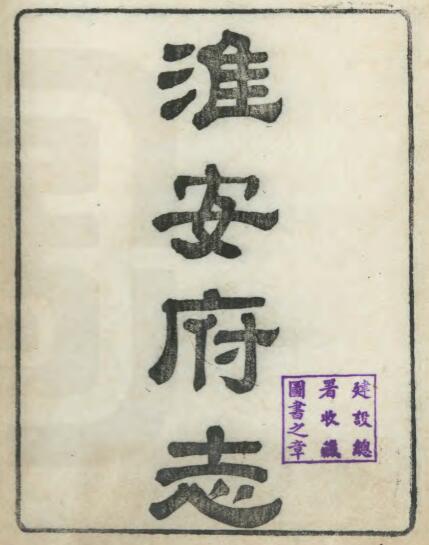 淮安府志
建設總
署收藏
圖書之章